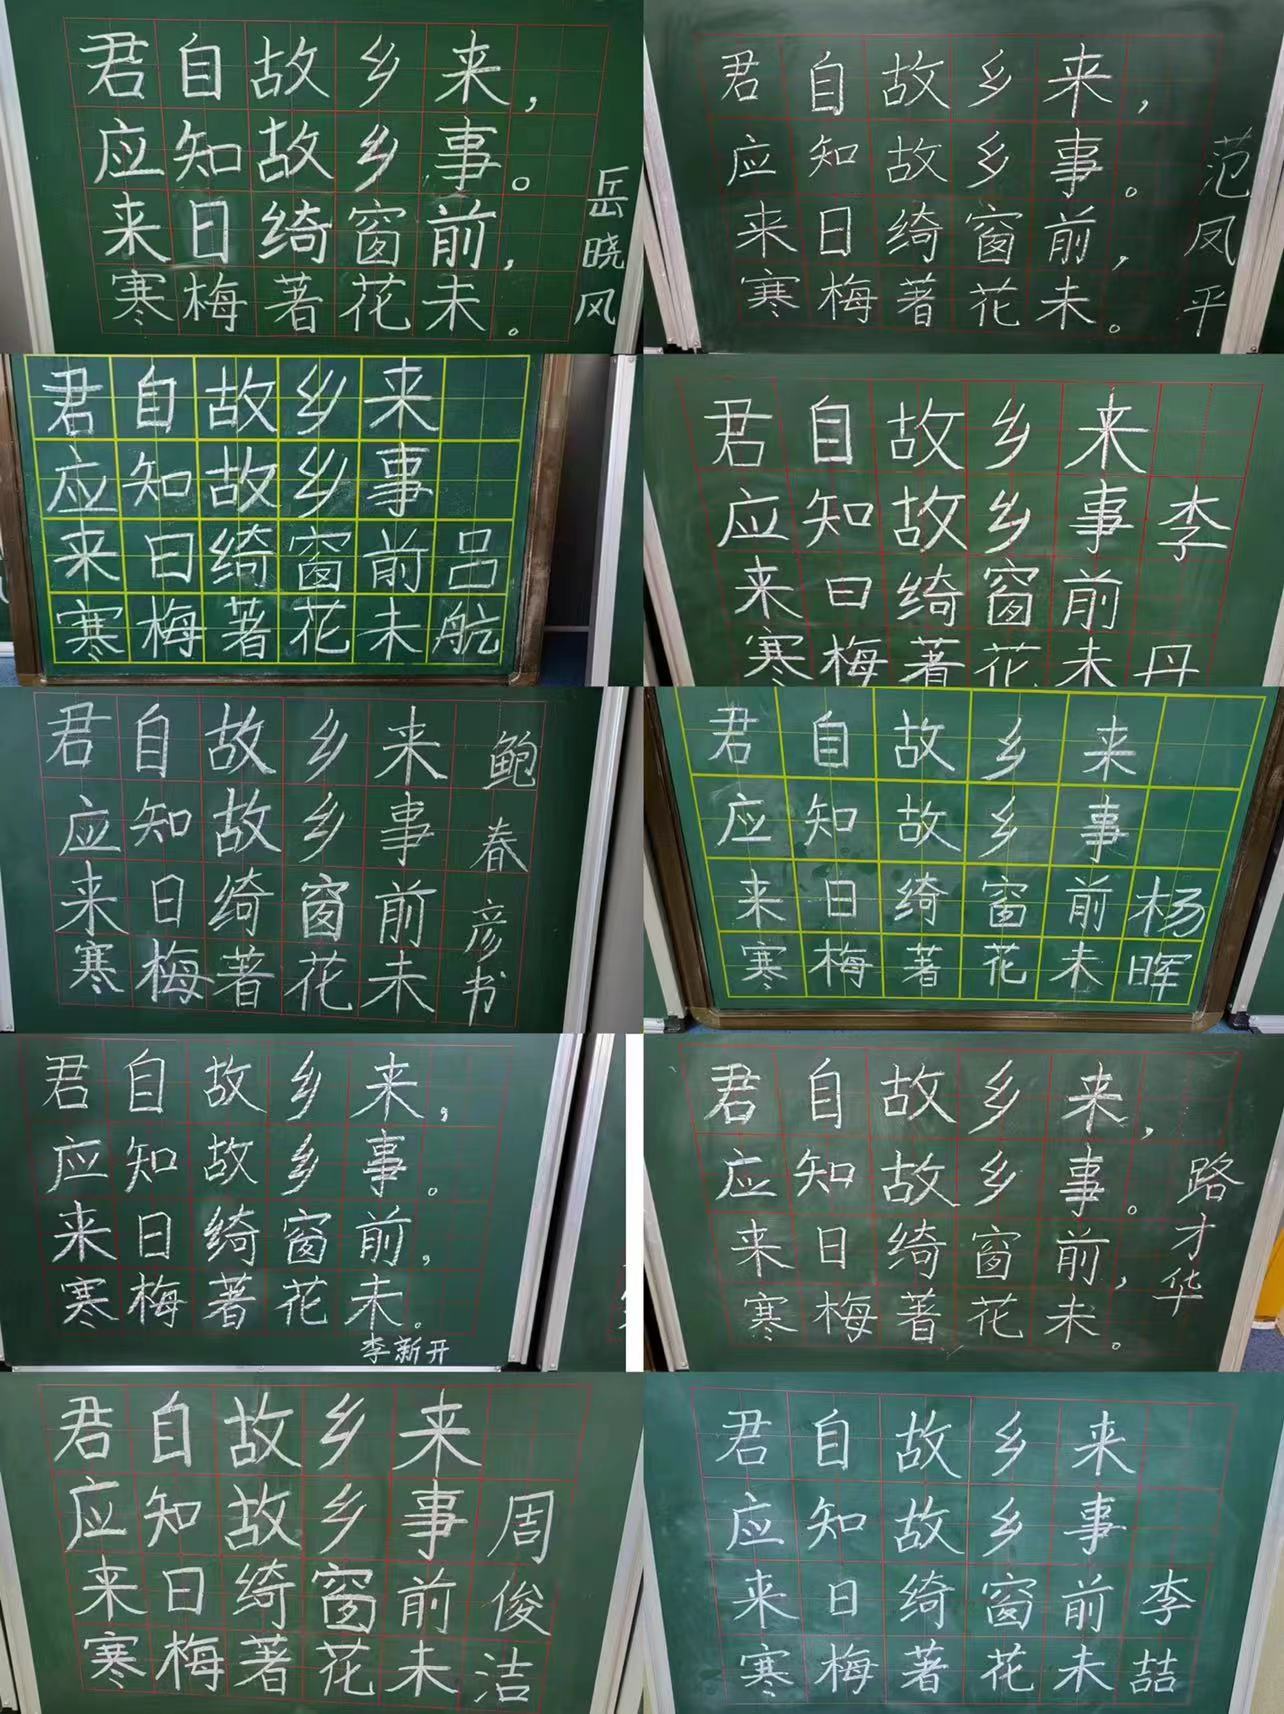 君自故乡来，
应知故乡事。
来日绮窗前，
寒梅著花未。
岳晓风
君自故乡来，
应知故乡事。
来日绮窗前，
寒梅著花未。
范凤平
君自故乡来
应知故乡事
来日绮窗前
寒梅著花未
吕航
君自故乡来
应知故乡事
来日绮窗前
寒梅著花未
李丹
君自故乡来
应知故乡事
来日绮窗前
寒梅著花未
鲍春彦书
君自故乡来
应知故乡事
来日绮窗前
寒梅著花未
杨晖
君自故乡来，
应知故乡事。
来日绮窗前，
寒梅著花未。
李新开
君自故乡来，
应知故乡事。
来日绮窗前，
寒梅著花未。
路才华
君自故乡来
应知故乡事
来日绮窗前
寒梅著花未
周俊洁
君自故乡来
应知故乡事
来日绮窗前
寒梅著花未
李喆